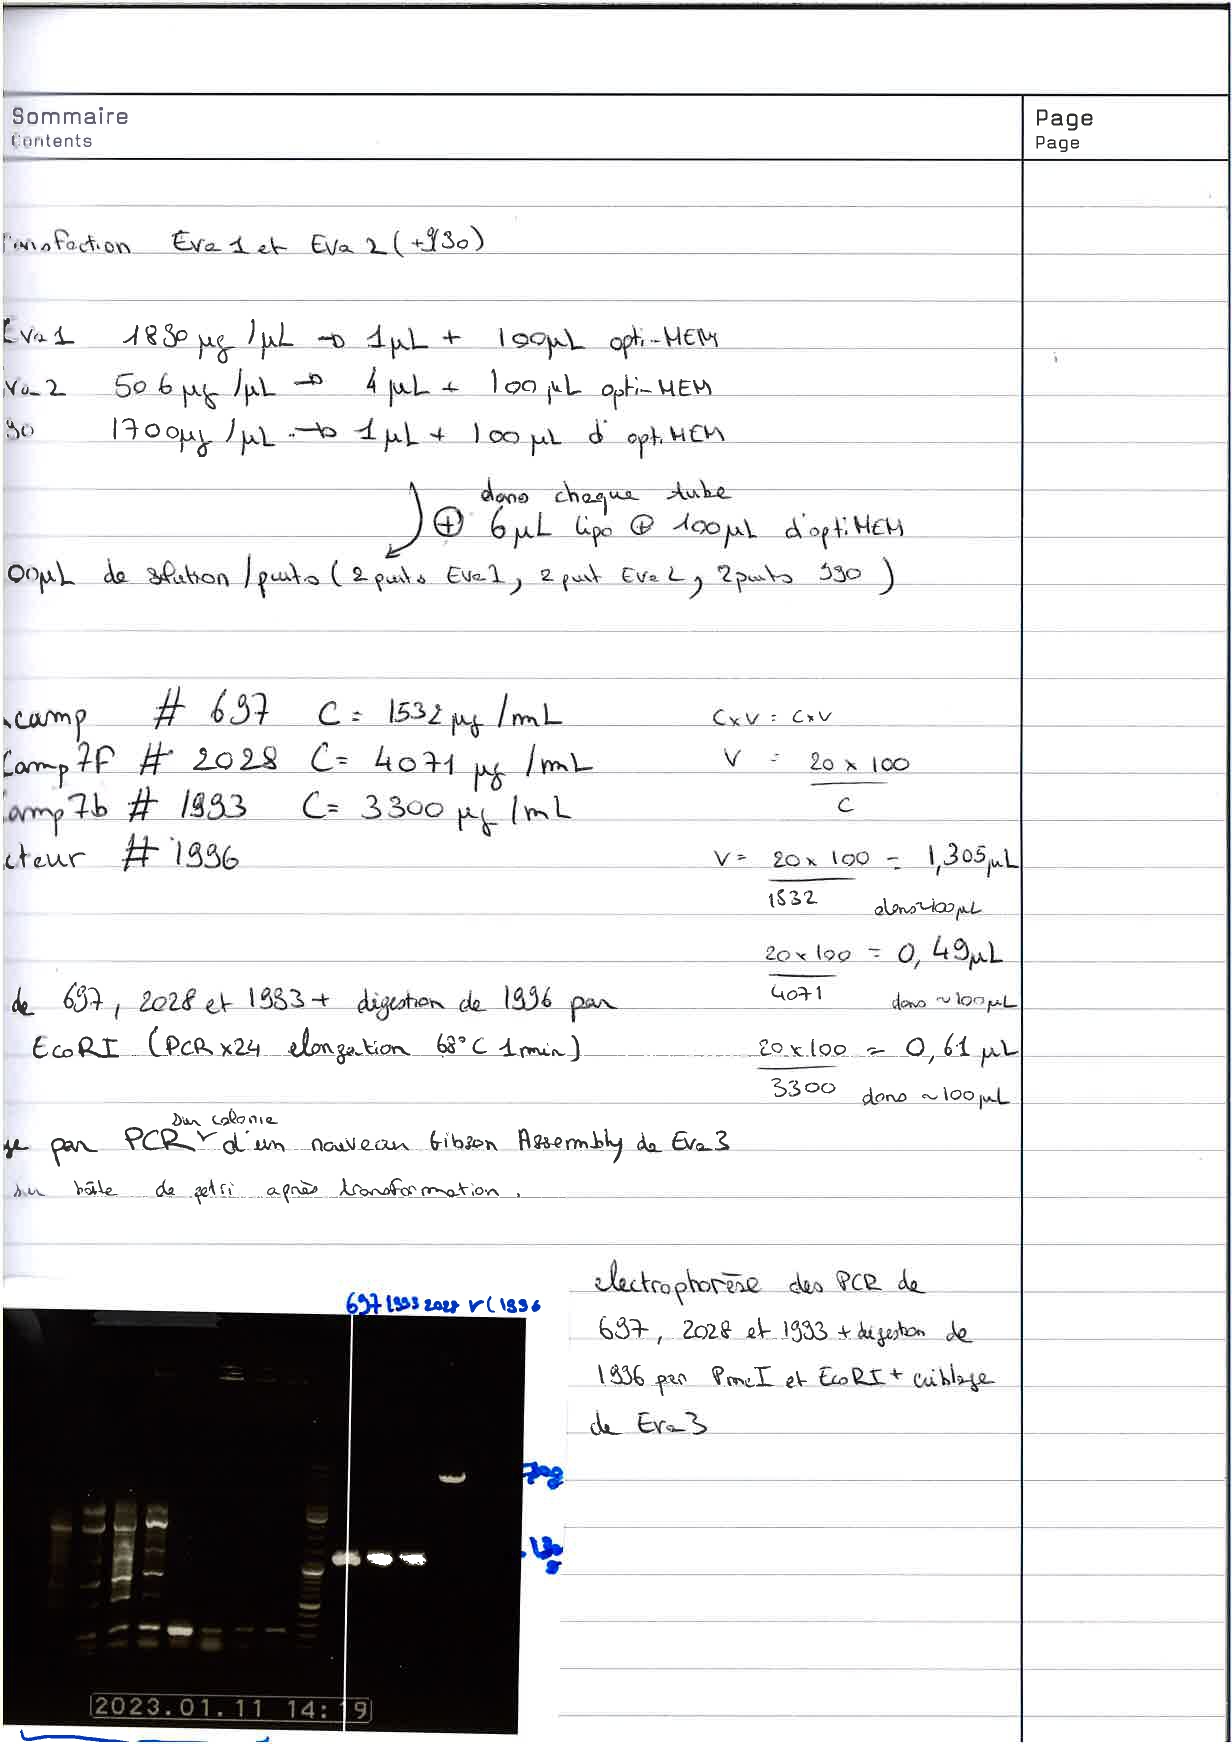 Sommaire
Contents
Page
Page
Eva 1 et Eva 2 (+990)
Eva 1 1830 µg/µL → 1 µL + 100 µL opti-MEM
Eva 2 506 µg/µL → 4 µL + 100 µL opti-MEM
90 1700 µg/µL → 1 µL + 100 µL d'optiMEM
dans chaque tube
⊕ 6 µL lipo ⊕ 100 µL d'optiMEM
00 µL de solution / puits (2 puits Eva 1, 2 puit Eva 2, 2 puits 990)
camp # 697 C = 1532 µg/mL
Camp 7F # 2028 C = 4071 µg/mL
amp 7b # 1993 C = 3300 µg/mL
cteur # 1996
C×V = C×V
V = 20 × 100
C
V = 20 × 100 = 1,305 µL
1532 dans ~100 µL
20 × 100 = 0,49 µL
4071 dans ~100 µL
20 × 100 = 0,61 µL
3300 dans ~100 µL
de 697, 2028 et 1993 + digestion de 1996 par
EcoRI (PCR x24 elongation 68°C 1 min)
sur colonie
ge par PCR d'un nouveau Gibson Assembly de Eva 3
sur boîte de petri après transformation.
697 1993 2028 V(1996
electrophorèse des PCR de
697, 2028 et 1993 + digestion de
1996 par PmeI et EcoRI + criblage
de Eva 3
2023.01.11 14:19